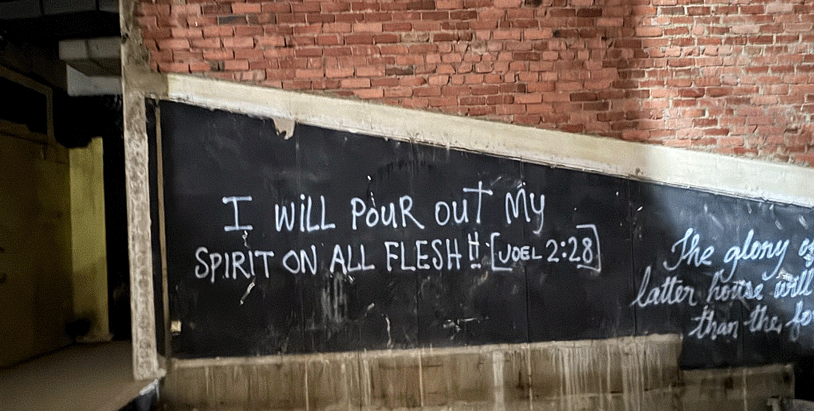 I WILL POUR OUT MY
SPIRIT ON ALL FLESH!! [JOEL 2:28]
The glory
latter house will
than the